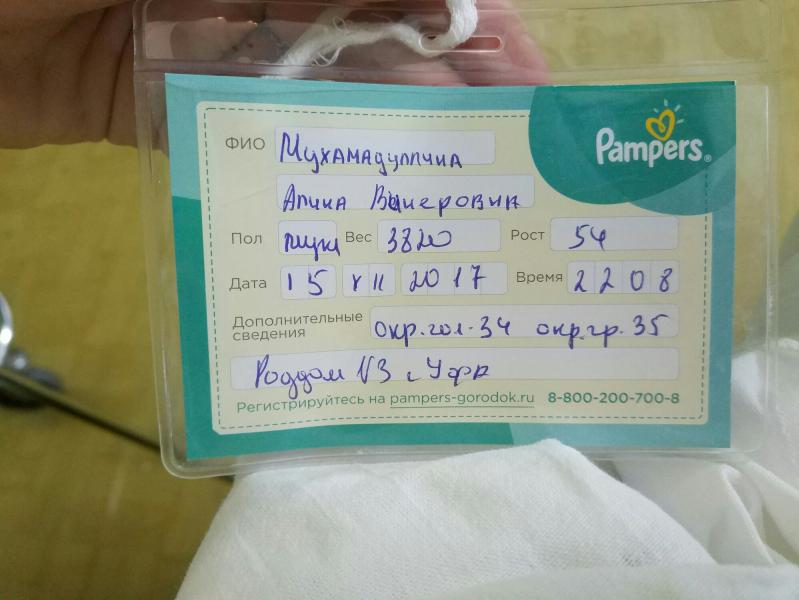 Pampers®
ФИО Мухамадуллина
Алина Винеровна
Пол Вес 3820 Рост 54
Дата 15 XII 2017 Время 2208
Дополнительные сведения окр.гол-34 окр.гр. 35
Роддом №3 г Уфа
Регистрируйтесь на pampers-gorodok.ru 8-800-200-700-8